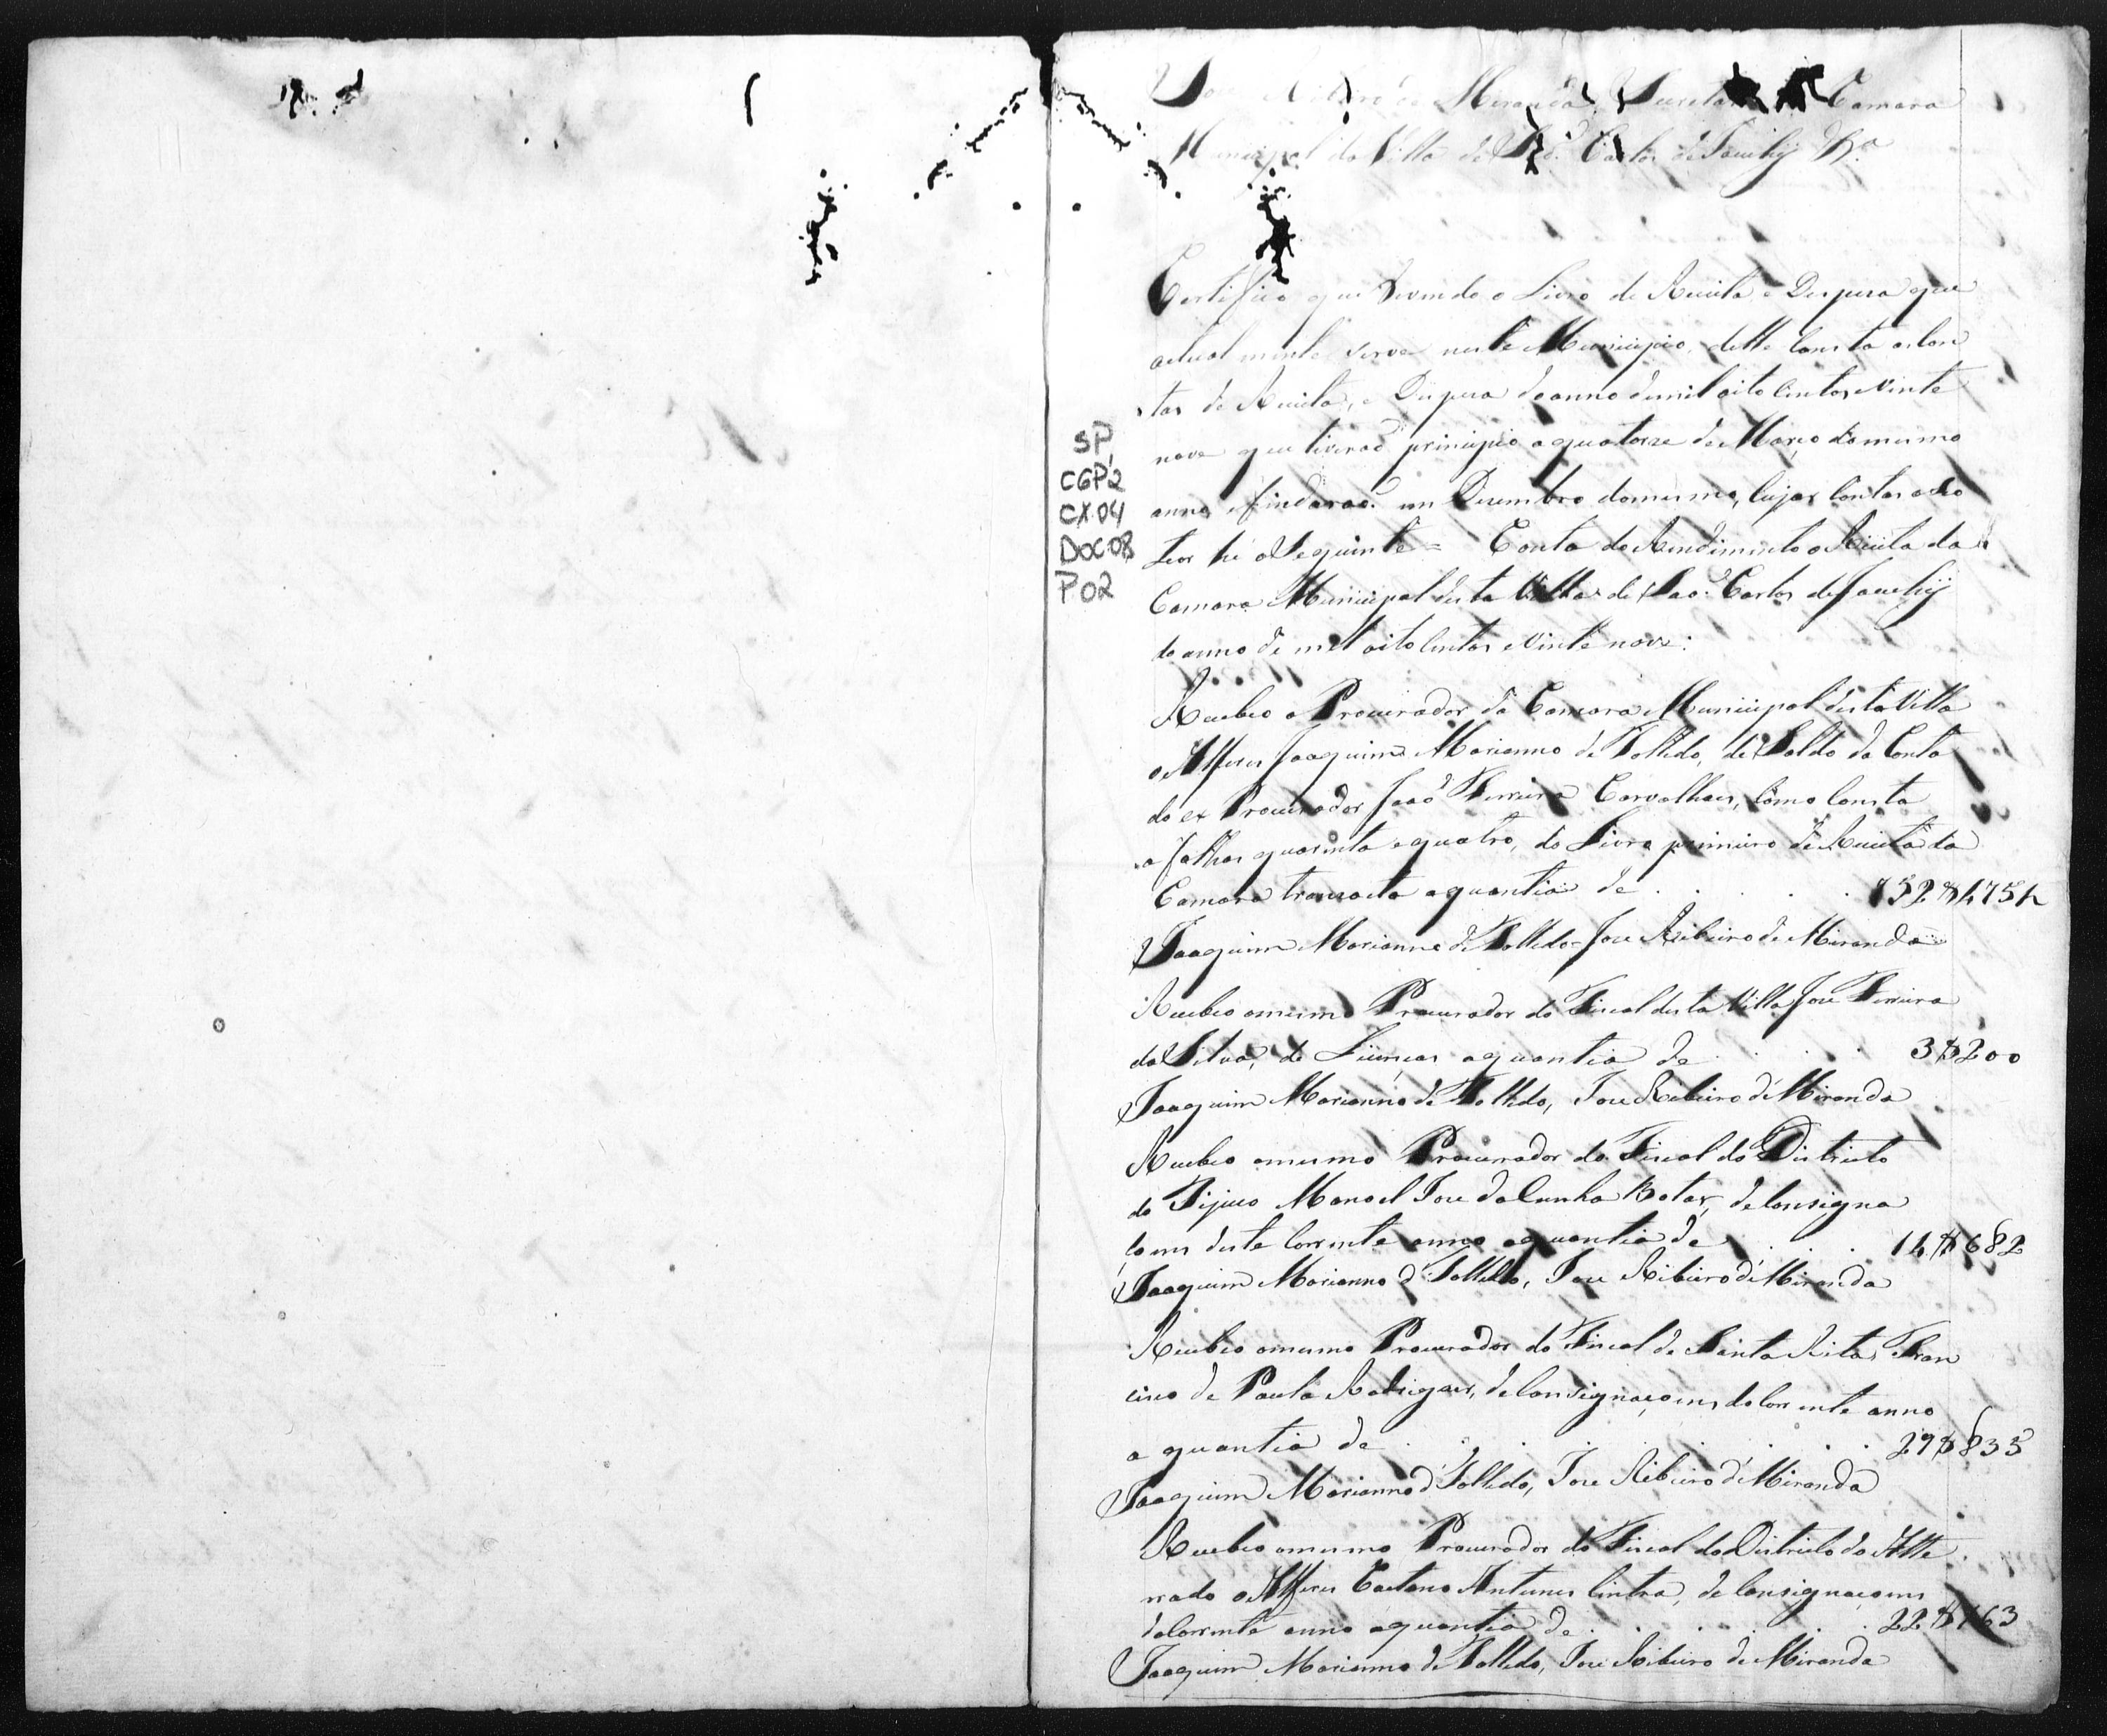 Jose Ribeiro de Miranda, Secretario da Camara
Municipal da Villa de S. Carlos de Jacuhÿ &.ª
Certifico que revendo o Livro de Receita e Despeza que
actual mente serve neste Municipio, delle consta as con
tas de Receita, e Despeza do anno de mil oito centos e vinte
nove que tiveraõ principio a quatorze de Março do mesmo
anno e findaraõ em Dezembro do mesmo, cujas contas o seo
teor hé o Seguinte = Conta do Rendimento e Receita da
Camara Municipal desta Villa de Saõ Carlos de Jacuhÿ
do anno de mil oito centos e vinte nove:
SP,
CGP2
CX.04
DOC.08
P02
Recebeo o Procurador da Camara Municipal desta Villa
o Alferes Joaquim Marianno de Tolledo, de Saldo da Conta
do ex Procurador Joaõ Ferreira Carvalhaes, como consta
a folhas quarenta e quatro, do Livro primeiro de Receita da
Camara transacta a quantia de . . . .
Joaquim Marianno de Tolledo = Jose Ribeiro de Miranda
Recebeo o mesmo Procurador do Fiscal desta Villa Jose Ferreira
da Silva, de Licenças a quantia de . . . 3$200
Joaquim Marianno de Tolledo, Jose Ribeiro de Miranda
Recebeo o mesmo Procurador do Fiscal do Districto
do Tijuco Manoel Jose da Cunha Botas, de consigna
çoens deste corrente anno a quantia de . . . 14$682
Joaquim Marianno de Tolledo, Jose Ribeiro de Miranda
Recebeo o mesmo Procurador do Fiscal de Santa Rita, Fran
cisco de Paula Rodrigues, de consignaçoens do corrente anno
a quantia de . . . . . . 29$835
Joaquim Marianno de Tolledo, Jose Ribeiro de Miranda
Recebeo o mesmo Procurador do Fiscal do Districto do Atte
rrado o Alferes Caetano Antunes Cintra, de consignaçoens
do corrente anno a quantia de . . . . . 22$163
Joaquim Marianno de Tolledo, Jose Ribeiro de Miranda